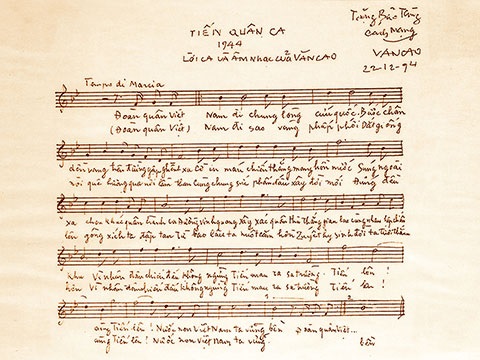 Tặng Bảo Tàng
Cách Mạng
VĂN CAO
22-12-94
TIẾN QUÂN CA
1944
LỜI CA VÀ ÂM NHẠC CỦA VĂN CAO
Tempo di Marcia
Đoàn quân Việt Nam đi chung lòng cứu quốc. Bước chân
(Đoàn quân Việt) Nam đi sao vàng phấp phới Dắt giống
dồn vang trên đường gập ghềnh xa Cờ in máu chiến thắng mang hồn nước Súng ngoài
nòi quê hương qua nơi lầm than cùng chung sức phấn đấu xây đời mới Đứng đều
xa chen khúc quân hành ca Đường vinh quang xây xác quân thù Thắng gian lao cùng nhau lập chiến
lên gông xích ta đập tan Từ bao lâu ta nuốt căm hờn Quyết hy sinh đời ta tươi thắm
khu Vì nhân dân chiến đấu không ngừng Tiến mau ra sa trường Tiến lên !
hơn Vì nhân dân chiến đấu không ngừng Tiến mau ra sa trường Tiến lên !
cùng Tiến lên ! Nước non Việt Nam ta vững bền quân việt...
cùng Tiến lên ! Nước non Việt Nam ta vững bền